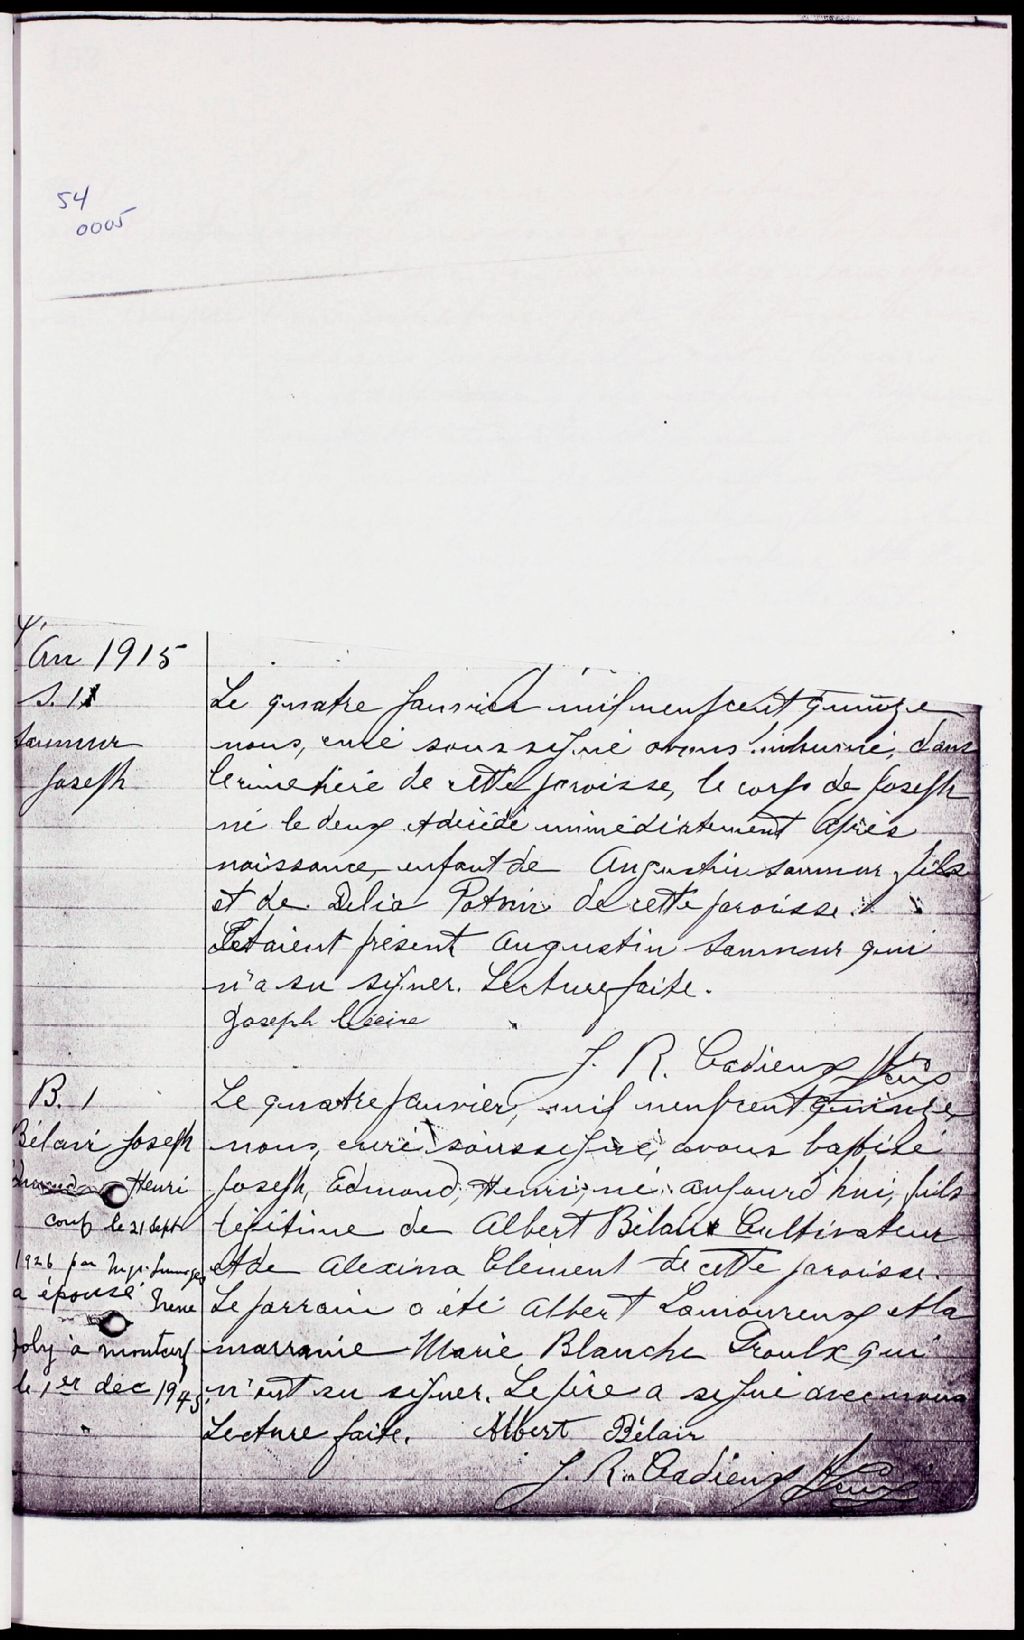 54
0005
An 1915
S. 1
Saumur
Joseph
Le quatre Janvier mil neuf cent quinze
nous, curé soussigné avons inhumé, dans
le cimetière de cette paroisse, le corps de Joseph
né le deux et décédé immédiatement après
naissance, enfant de Augustin Saumur fils
et de Delia Potvin de cette paroisse.
Etaient présent Augustin Saumur qui
n'a su signer. Lecture faite.
Joseph
J. R. Cadieux Ptre
B. 1
Bélair Joseph
Edmond Henri
conf le 21 Sept
1926 par Mgr
a épousé Irene
Joly à Montcerf
le 1er dec 1945.
Le quatre Janvier, mil neuf cent quinze,
nous, curé soussigné, avons baptisé
Joseph, Edmond, Henri, né aujourd'hui, fils
légitime de Albert Bélair Cultivateur
et de Alexina Clément de cette paroisse.
Le parrain a été Albert Lamoureux et la
marraine Marie Blanche Proulx qui
n'ont su signer. Le père a signé avec nous
Lecture faite. Albert Bélair
J. R. Cadieux Ptre